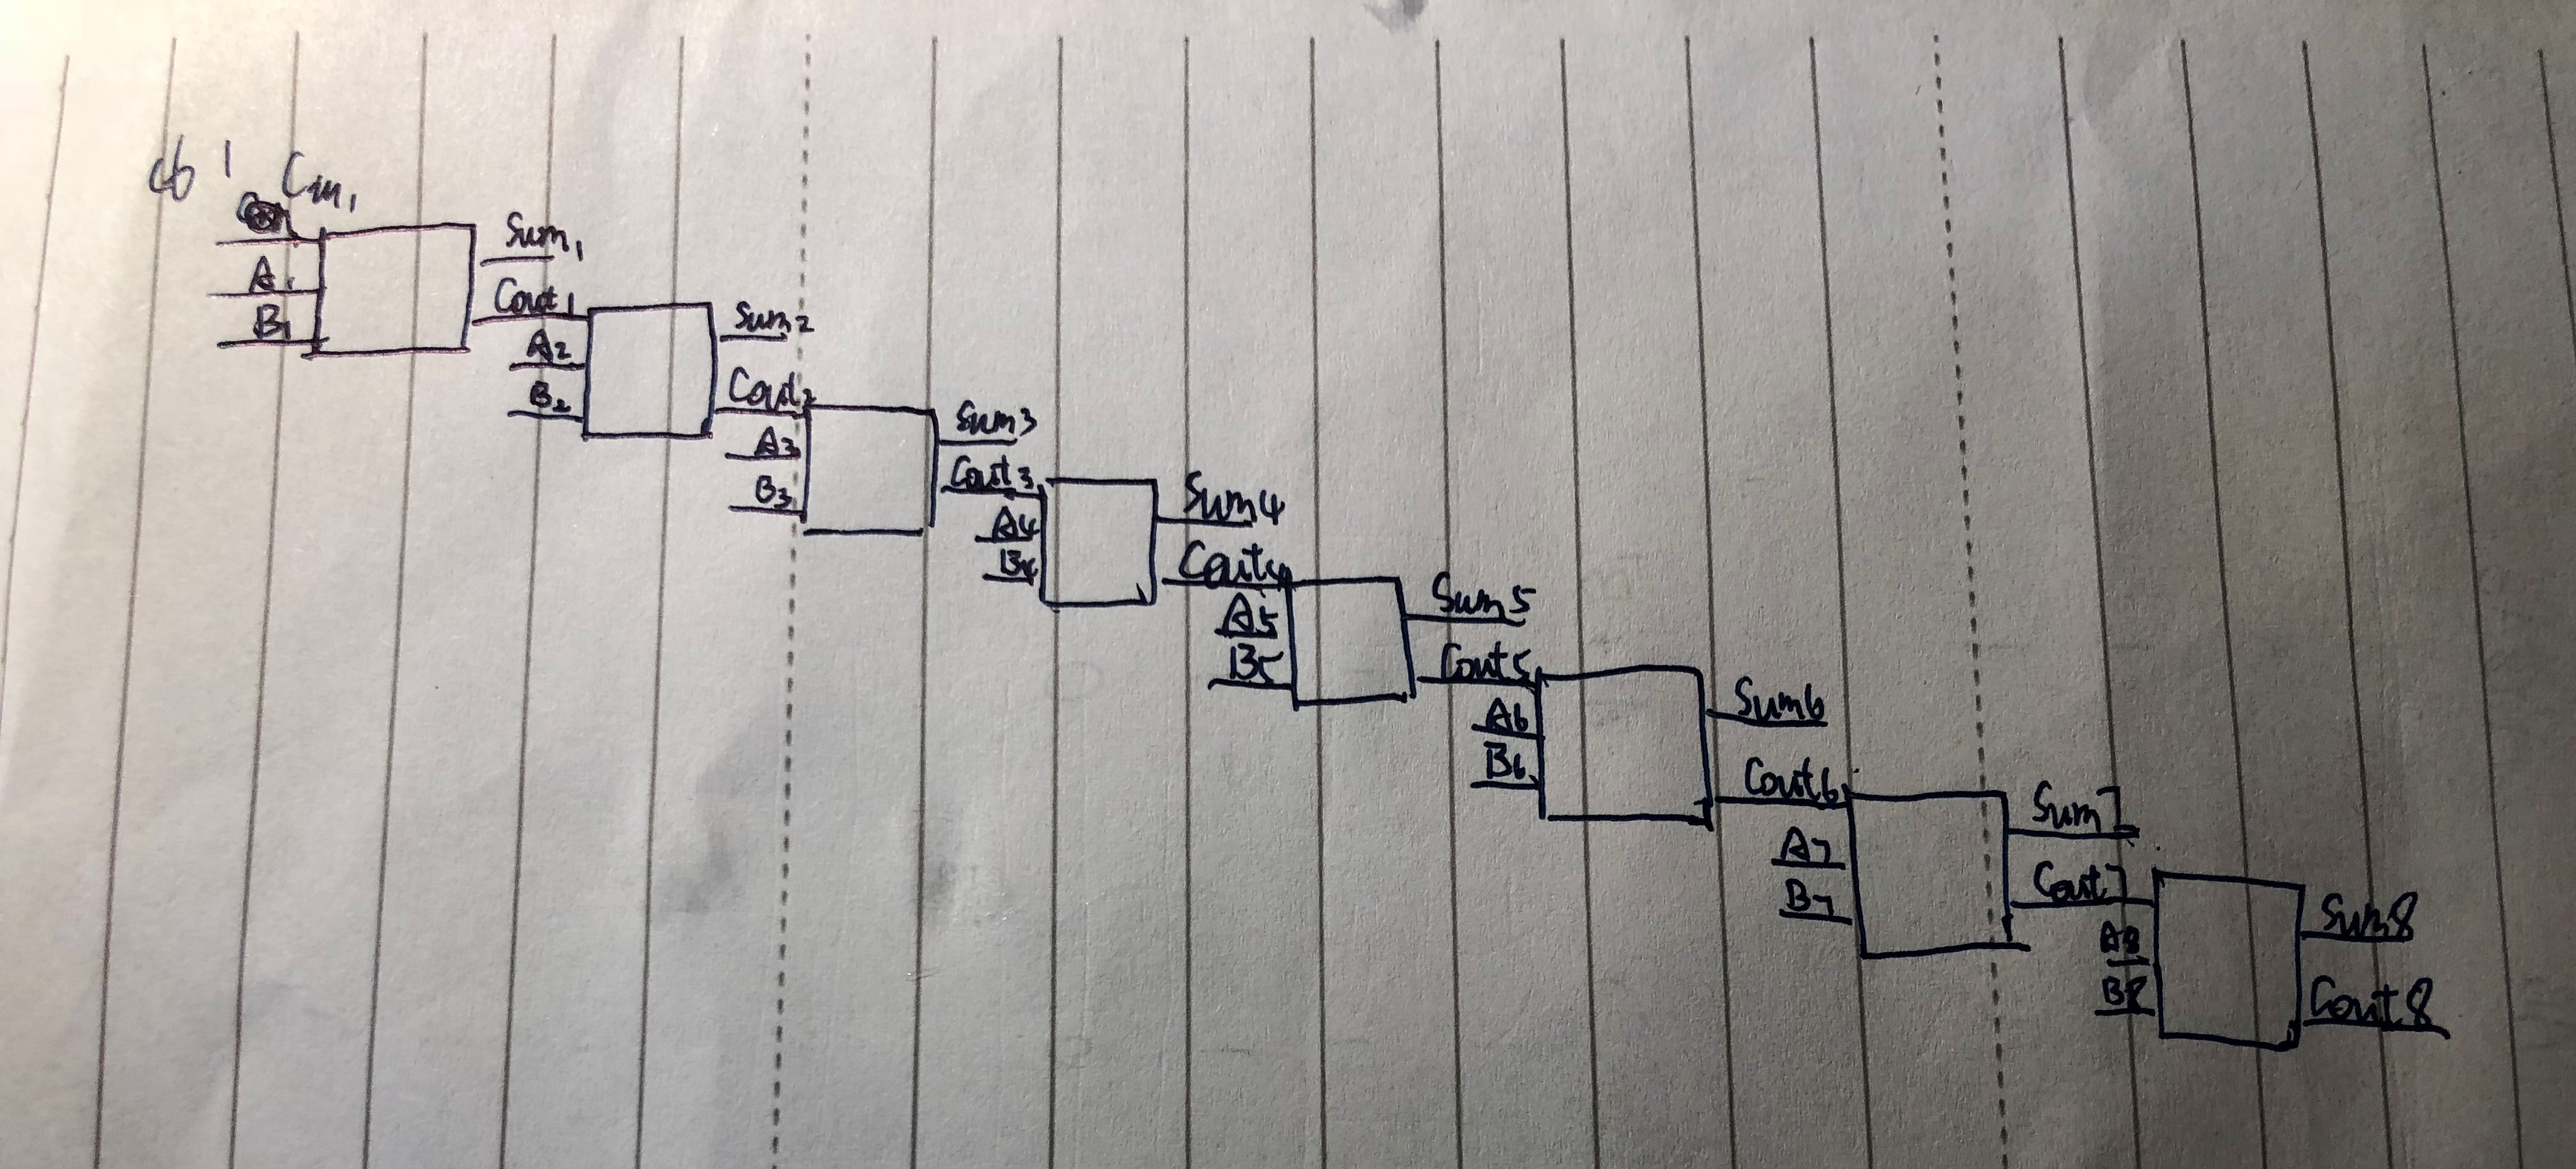 Cin1
A1
B1
Sum1
Cout1
A2
B2
Sum2
Cout2
A3
B3
Sum3
Cout3
A4
B4
Sum4
Cout4
A5
B5
Sum5
Cout5
A6
B6
Sum6
Cout6
A7
B7
Sum7
Cout7
A8
B8
Sum8
Cout8